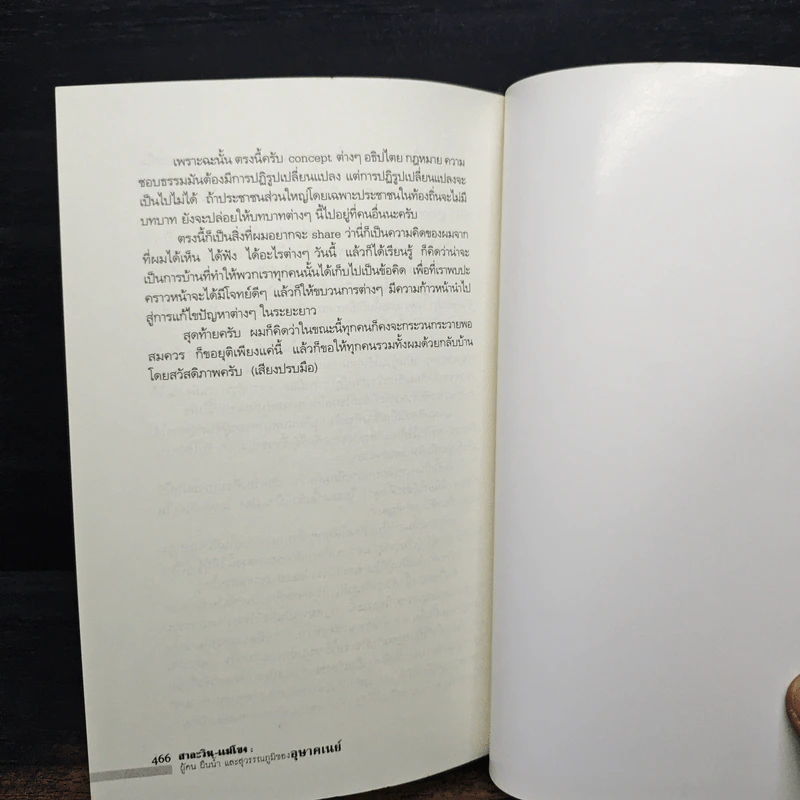 เพราะฉะนั้น ตรงนี้ครับ concept ต่างๆ อธิปไตย กฎหมาย ความ
ชอบธรรมมันต้องมีการปฏิรูปเปลี่ยนแปลง แต่การปฏิรูปเปลี่ยนแปลงจะ
เป็นไปไม่ได้ ถ้าประชาชนส่วนใหญ่โดยเฉพาะประชาชนในท้องถิ่นจะไม่มี
บทบาท ยังจะปล่อยให้บทบาทต่างๆ นี้ไปอยู่ที่คนอื่นนะครับ
ตรงนี้ก็เป็นสิ่งที่ผมอยากจะ share ว่านี่ก็เป็นความคิดของผมจาก
ที่ผมได้เห็น ได้ฟัง ได้อะไรต่างๆ วันนี้ แล้วก็ได้เรียนรู้ ก็คิดว่าน่าจะ
เป็นการบ้านที่ทำให้พวกเราทุกคนนั้นได้เก็บไปเป็นข้อคิด เพื่อที่เราพบปะ
คราวหน้าจะได้มีโจทย์ดีๆ แล้วก็ให้ขบวนการต่างๆ มีความก้าวหน้านำไป
สู่การแก้ไขปัญหาต่างๆ ในระยะยาว
สุดท้ายครับ ผมก็คิดว่าในขณะนี้ทุกคนก็คงจะกระวนกระวายพอ
สมควร ก็ขอยุติเพียงแค่นี้ แล้วก็ขอให้ทุกคนรวมทั้งผมด้วยกลับบ้าน
โดยสวัสดิภาพครับ (เสียงปรบมือ)
466 สาละวิน-แม่โขง :
ผู้คน ผืนน้ำ และสุวรรณภูมิของอุษาคเนย์